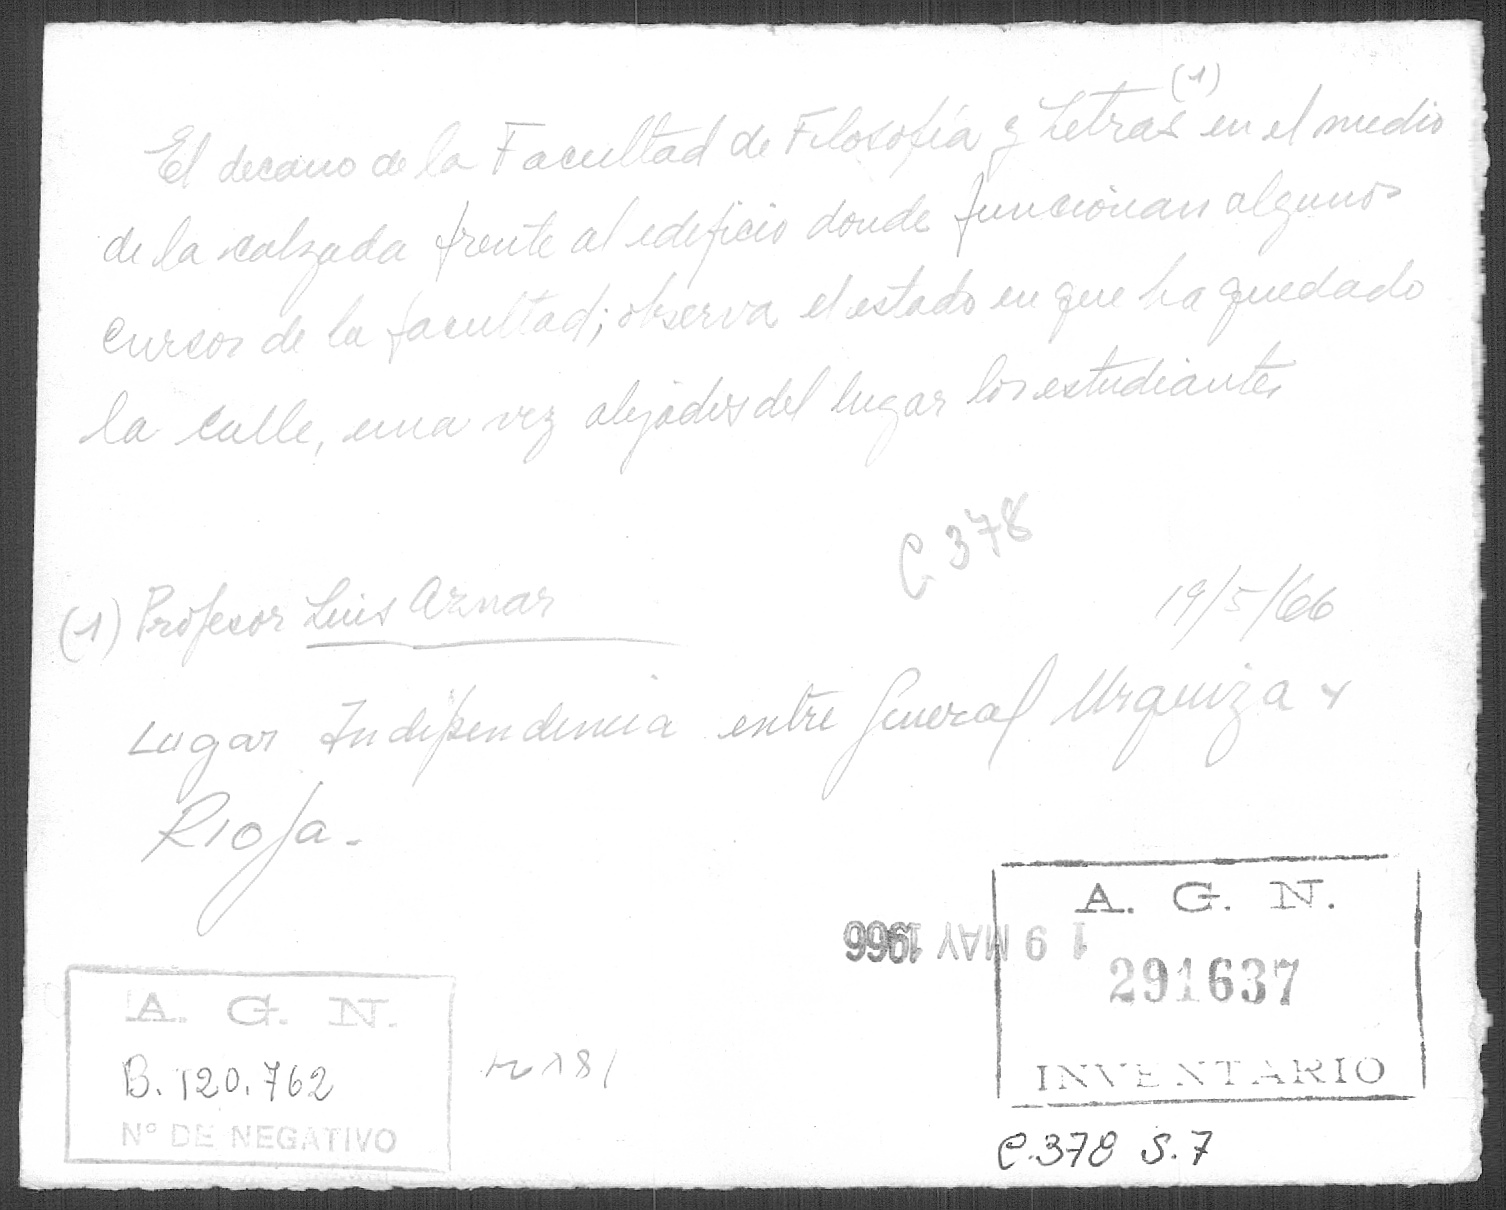 El decano de la Facultad de Filosofía y Letras (1) en el medio
de la calzada frente al edificio donde funcionan algunos
cursos de la facultad; observa el estado en que ha quedado
la calle, una vez alejados del lugar los estudiantes
C 378
(1) Profesor Luis Aznar
19/5/66
Lugar Independencia entre General Urquiza y
Rioja.
A. G. N.
19 MAY 1966
291637
INVENTARIO
A. G. N.
B. 120.762
Nº DE NEGATIVO
C.378 S.7